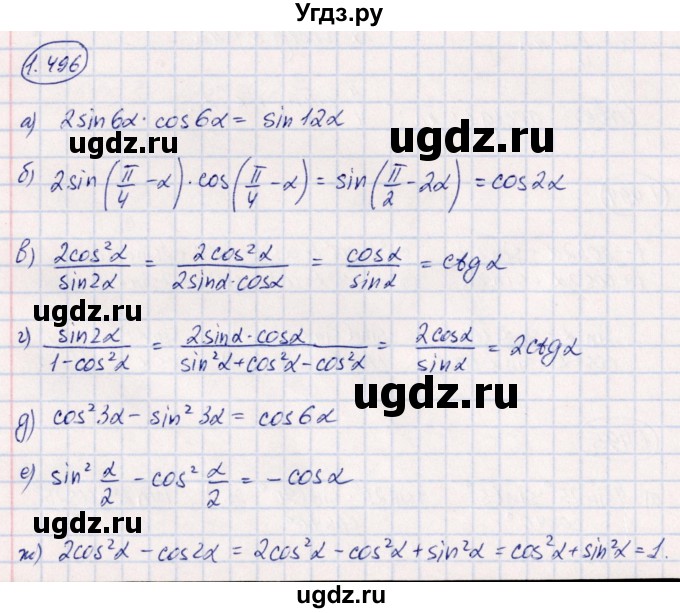 Угдз.ру
1.496
а) 2sin6α·cos6α = sin12α
ugdz.ru
б) 2sin(π/4 − α)·cos(π/4 − α) = sin(π/2 − 2α) = cos2α
ugdz.ru
в) 2cos²α/sin2α = 2cos²α/2sinα·cosα = cosα/sinα = ctgα
ugdz.ru
г) sin2α/1−cos²α = 2sinα·cosα/sin²α+cos²α−cos²α = 2cosα/sinα = 2ctgα
ugdz.ru
д) cos²3α − sin²3α = cos6α
е) sin² α/2 − cos² α/2 = −cosα
ж) 2cos²α − cos2α = 2cos²α − cos²α + sin²α = cos²α + sin²α = 1.
ugdz.ru
ugdz.ru